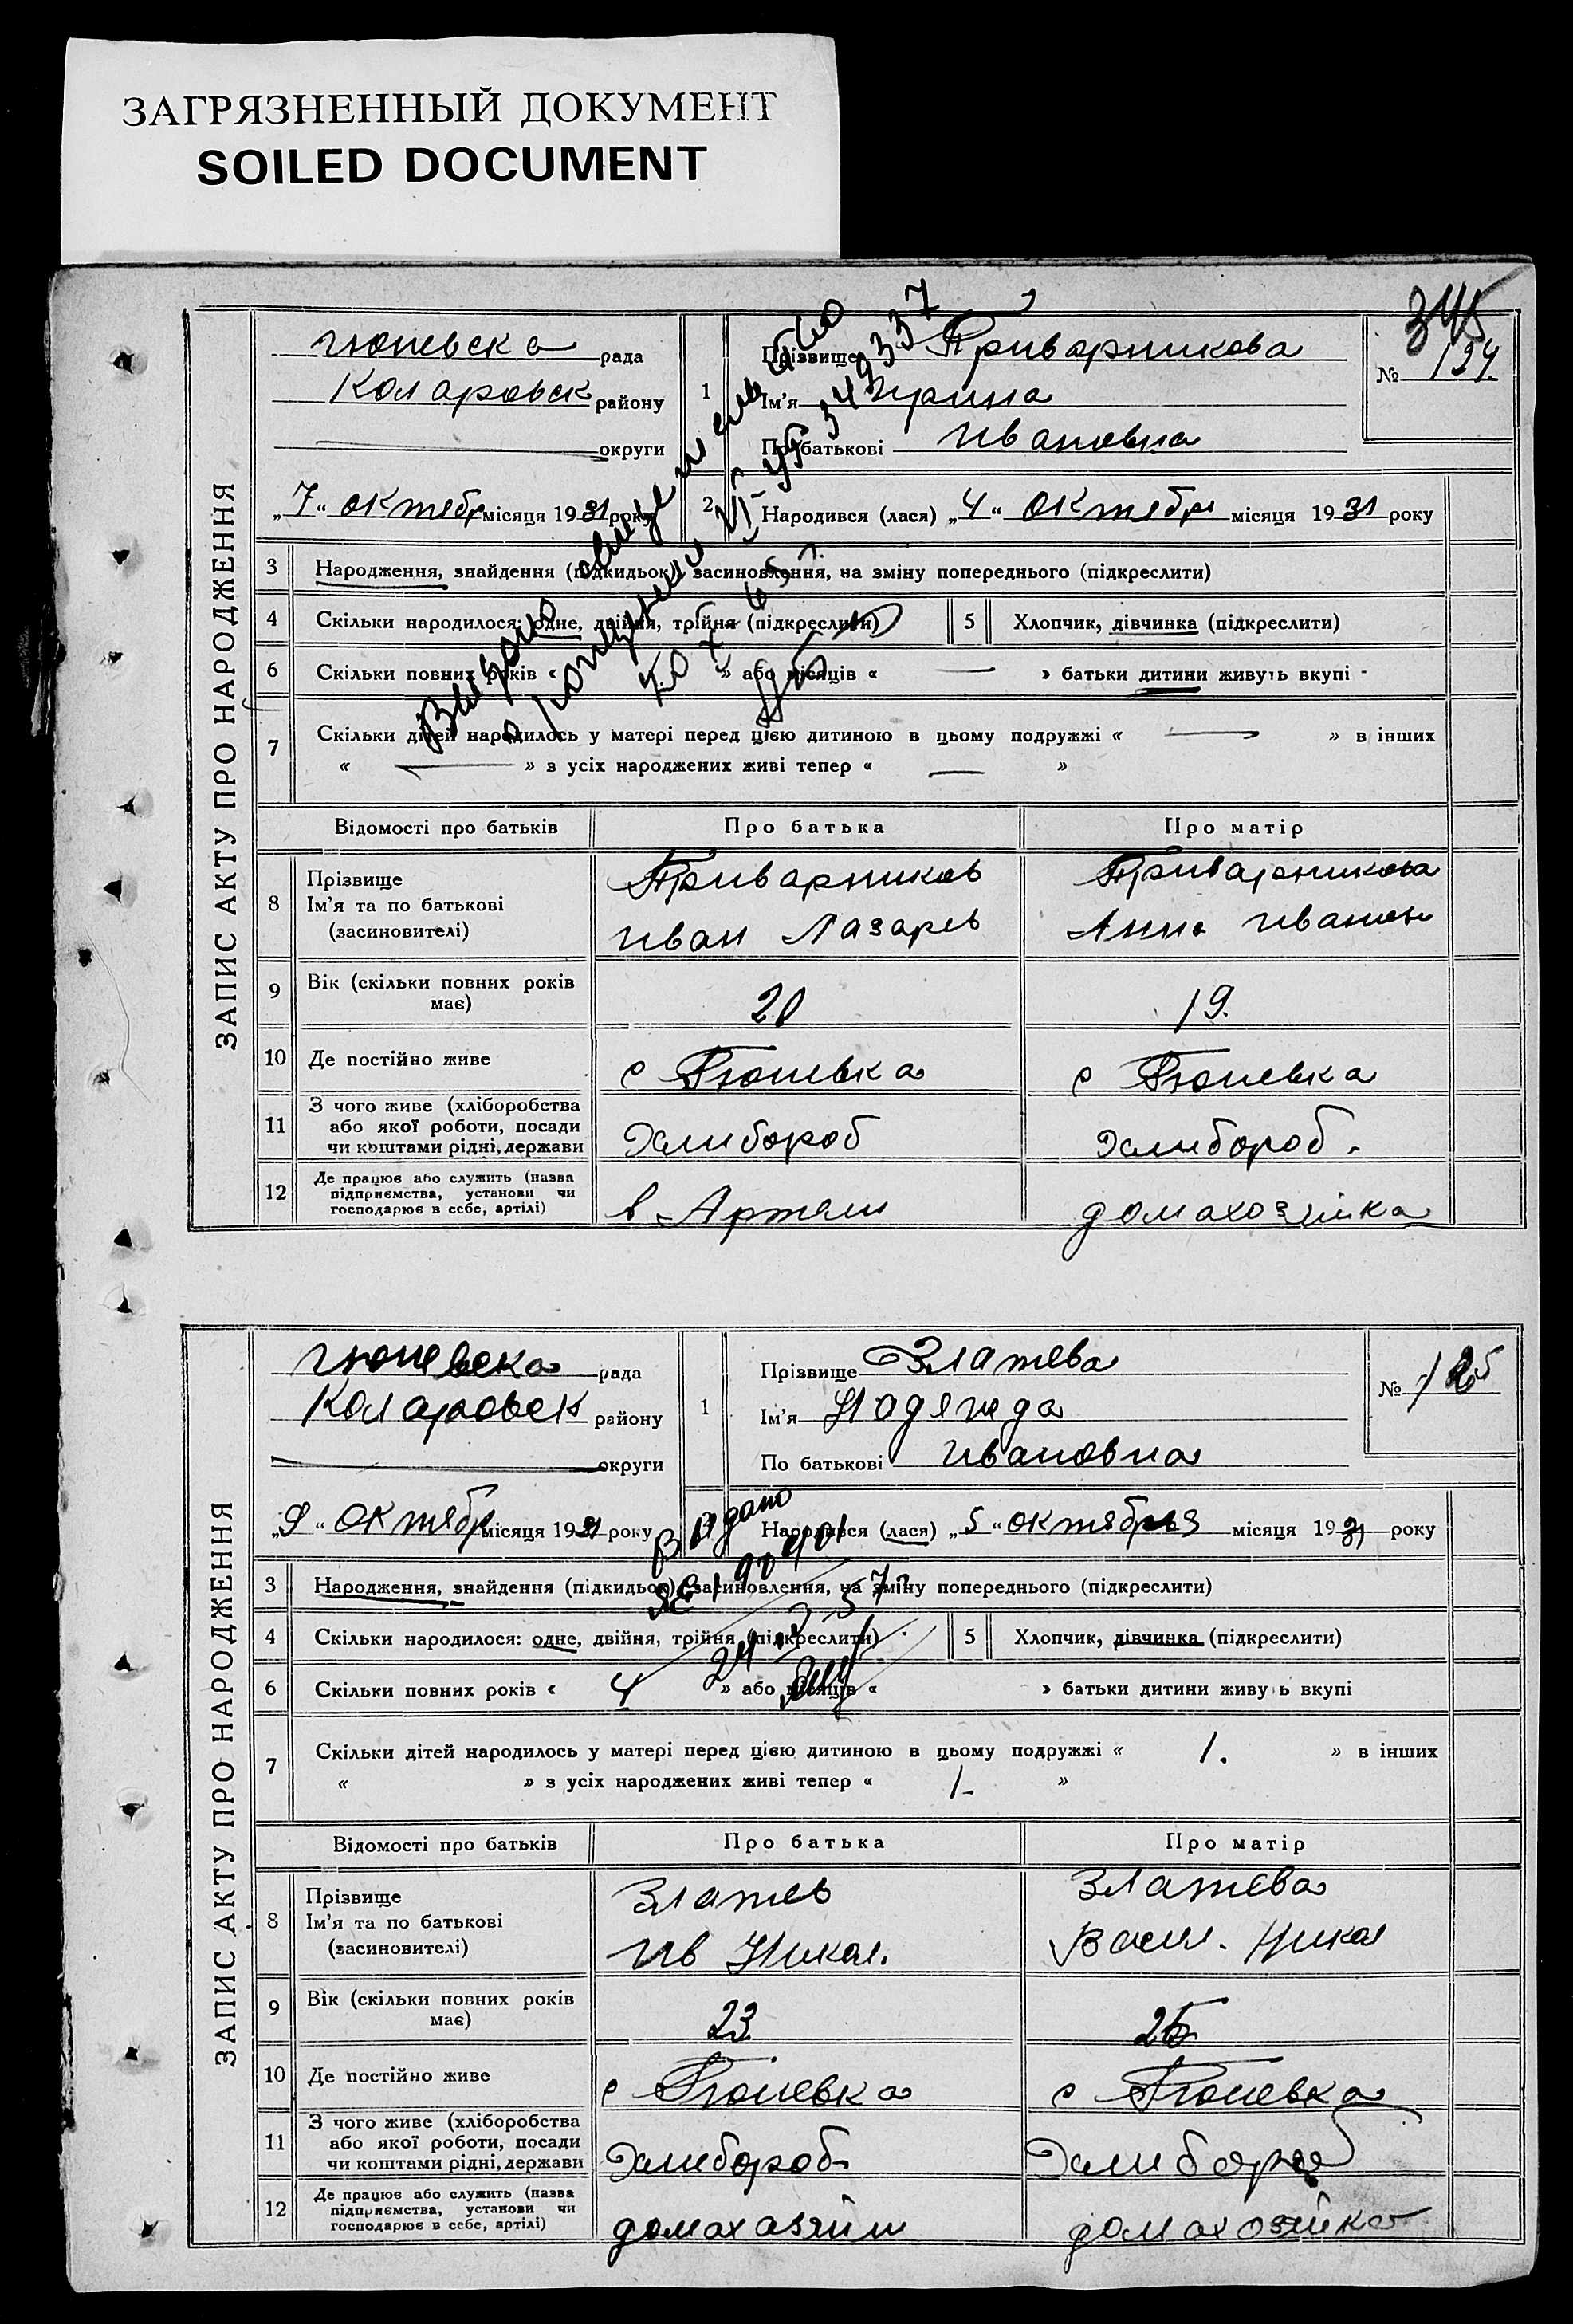 ЗАГРЯЗНЕННЫЙ ДОКУМЕНТ
SOILED DOCUMENT
345
ЗАПИС АКТУ ПРО НАРОДЖЕННЯ
гюневска рада
Коларовск району
округи
1 Прізвище Приварникова
Ім'я Ирина
По батькові Ивановна
№ 124.
„7" октябр місяця 1931 року
2 Народився (лася) „4" октябри місяця 1931 року
3 Народження, знайдення (підкидьок), засиновлення, на зміну попереднього (підкреслити)
4 Скільки народилося: одне, двійня, трійня (підкреслити) 5 Хлопчик, дівчинка (підкреслити)
6 Скільки повних років « » або місяців « — » батьки дитини живуть вкупі -
7 Скільки дітей народилось у матері перед цією дитиною в цьому подружжі « — » в інших
« — » з усіх народжених живі тепер « — »
Выдано свидетельство
о рождении
349337
Відомості про батьків Про батька Про матір
8 Прізвище
Ім'я та по батькові
(засиновителі)
Приварников
Иван Лазарев
Приварникова
Анна Иванов
9 Вік (скільки повних років
має)
20 19.
10 Де постійно живе с Гюневка с Гюневка
11 З чого живе (хліборобства
або якої роботи, посади
чи коштами рідні, держави
Хлибороб Хлибороб.
12 Де працює або служить (назва
підприємства, установи чи
господарює в себе, артілі)
в Артели домахозяйка
ЗАПИС АКТУ ПРО НАРОДЖЕННЯ
гюневска рада
Коларовск району
округи
1 Прізвище Златева
Ім'я Надежда
По батькові Ивановна
№ 125
„9" октябр місяця 1931 року
Народився (лася) „5" октября місяця 1931 року
3 Народження, знайдення (підкидьок), засиновлення, на зміну попереднього (підкреслити)
4 Скільки народилося: одне, двійня, трійня (підкреслити) 5 Хлопчик, дівчинка (підкреслити)
6 Скільки повних років « 4 » або місяців « » батьки дитини живуть вкупі
7 Скільки дітей народилось у матері перед цією дитиною в цьому подружжі « 1. » в інших
« » з усіх народжених живі тепер « 1- »
Выдано
Відомості про батьків Про батька Про матір
8 Прізвище
Ім'я та по батькові
(засиновителі)
Златев
Ив Никол.
Златева
Васил. Никол
9 Вік (скільки повних років
має)
23 25
10 Де постійно живе с Гюневка с Гюневка
11 З чого живе (хліборобства
або якої роботи, посади
чи коштами рідні, держави
Хлибороб Хлибороб
12 Де працює або служить (назва
підприємства, установи чи
господарює в себе, артілі)
домахазяйи домахозяйка